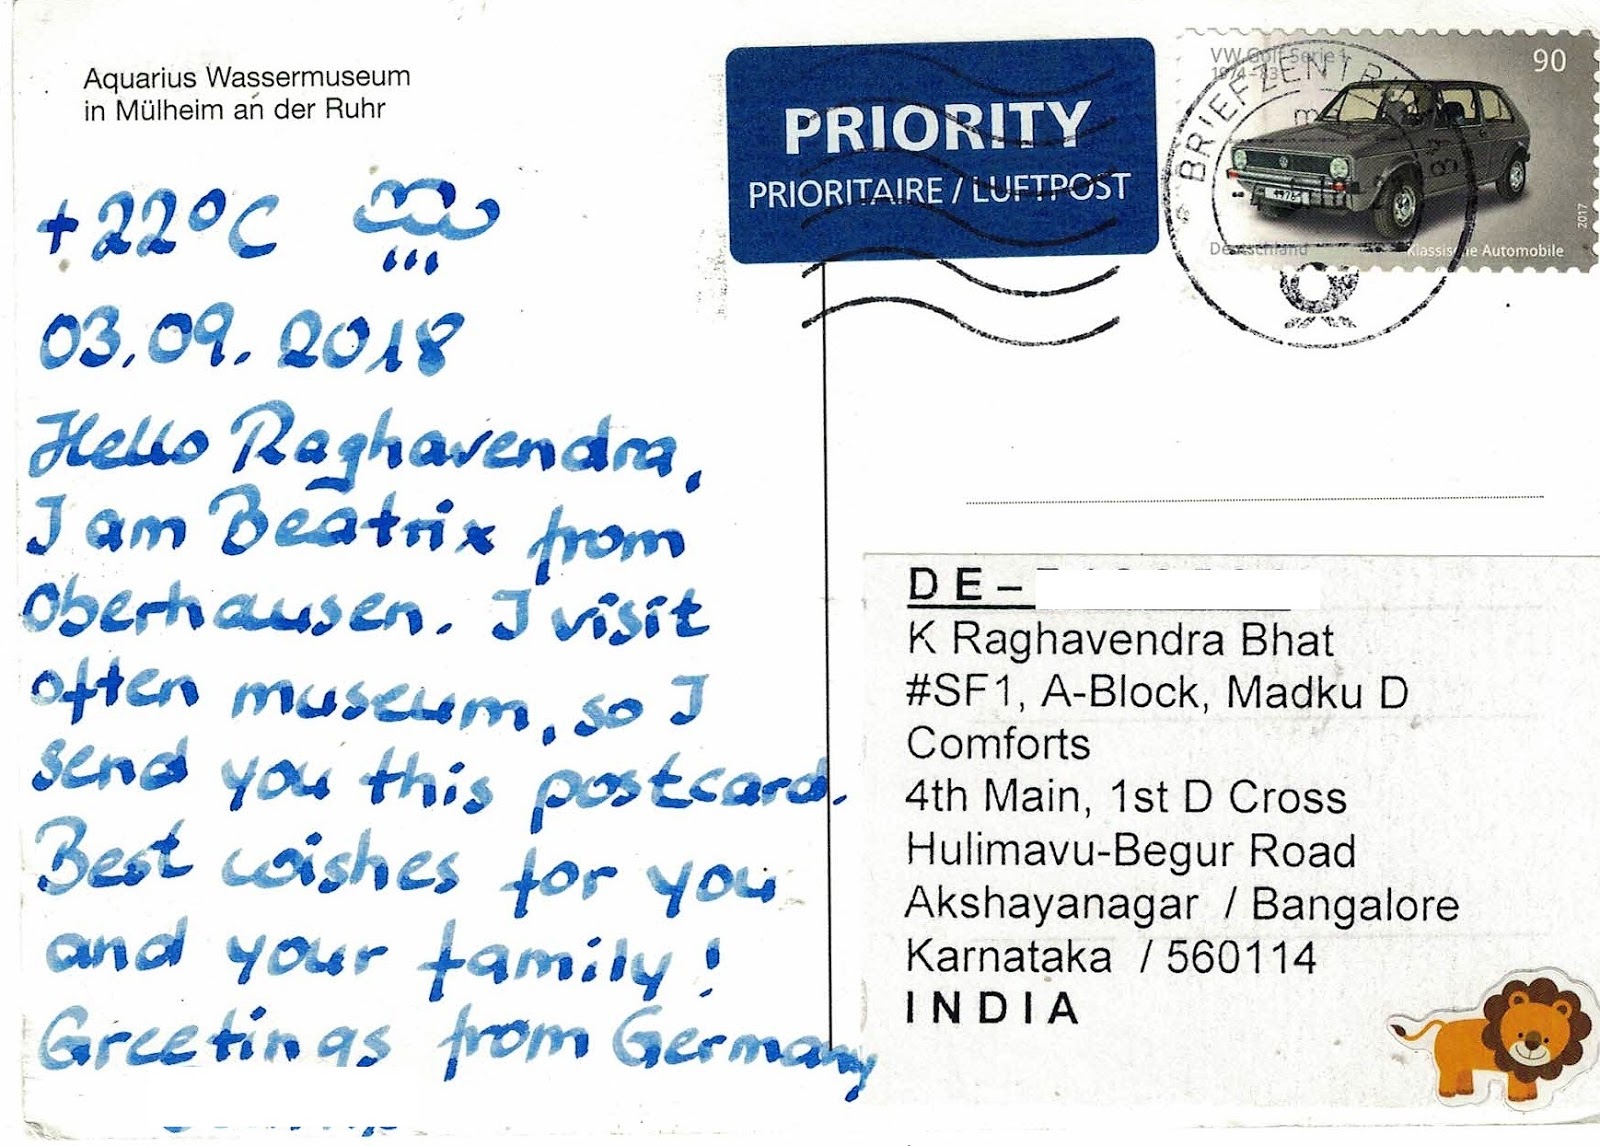 Aquarius Wassermuseum
in Mülheim an der Ruhr
+22°C
03.09.2018
Hello Raghavendra,
I am Beatrix from
Oberhausen. I visit
often museum, so I
send you this postcard.
Best wishes for you
and your family!
Greetings from Germany
PRIORITY
PRIORITAIRE / LUFTPOST
VW Golf Serie 1
1974-83
90
BRIEFZENTR
Deutschland
Klassische Automobile
2017
DE–
K Raghavendra Bhat
#SF1, A-Block, Madku D
Comforts
4th Main, 1st D Cross
Hulimavu-Begur Road
Akshayanagar / Bangalore
Karnataka / 560114
INDIA